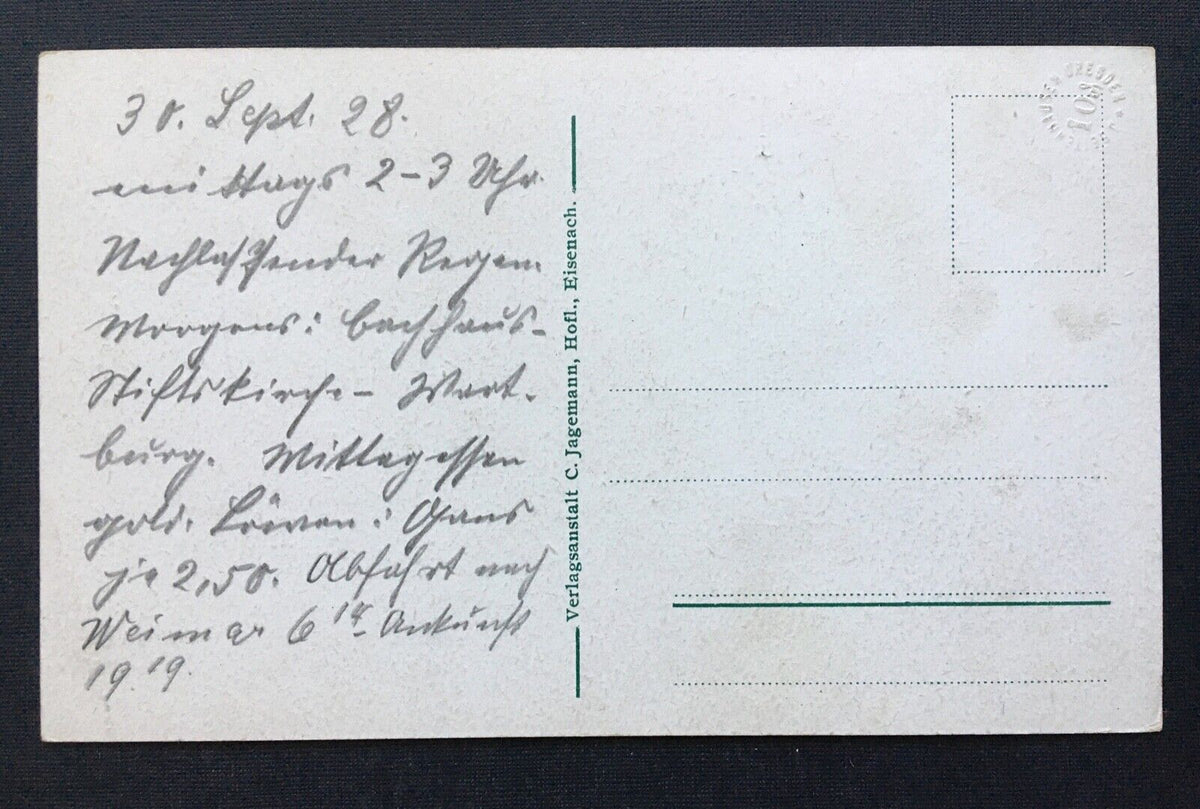 30. Sept. 28.
mittags 2-3 Uhr
Nachlassender Regen.
Morgens: Bachhaus-
Stiftskirche - Wart-
burg. Mittagessen
gold. Löwen: Gans
je 2,50. Abfahrt nach
Weimar 6 - Ankunft
19.19.
Verlagsanstalt C. Jagemann, Hofl., Eisenach.
DRESDEN
108